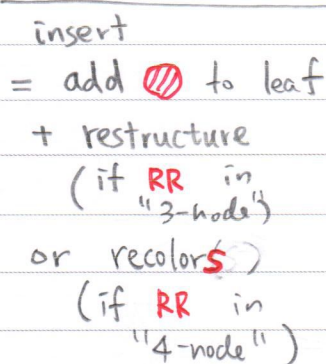 insert
= add to leaf
+ restructure
(if RR in
"3-node")
or recolors)
(if RR in
"4-node")